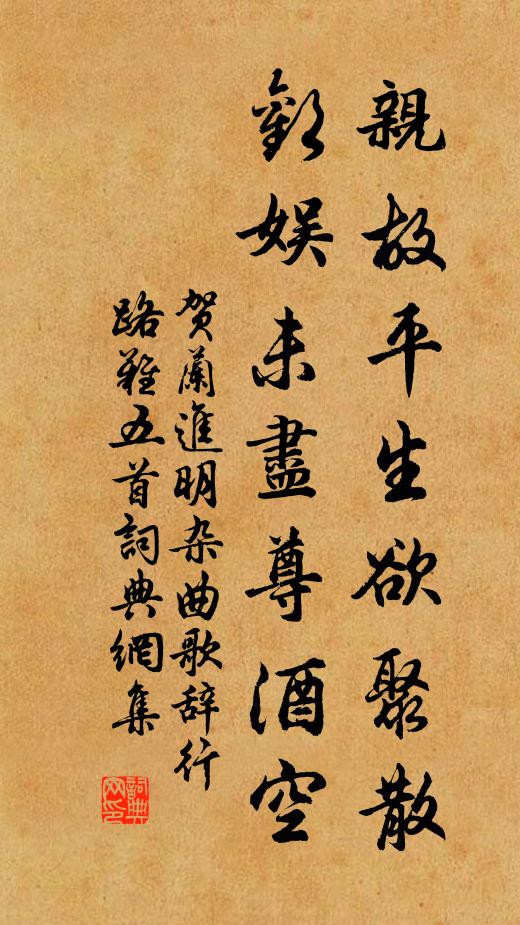 親故平生欲聚散
歡娱未盡尊酒空
贺蘭進明杂曲歌辞行
路难五首詞典網集
詞典网印